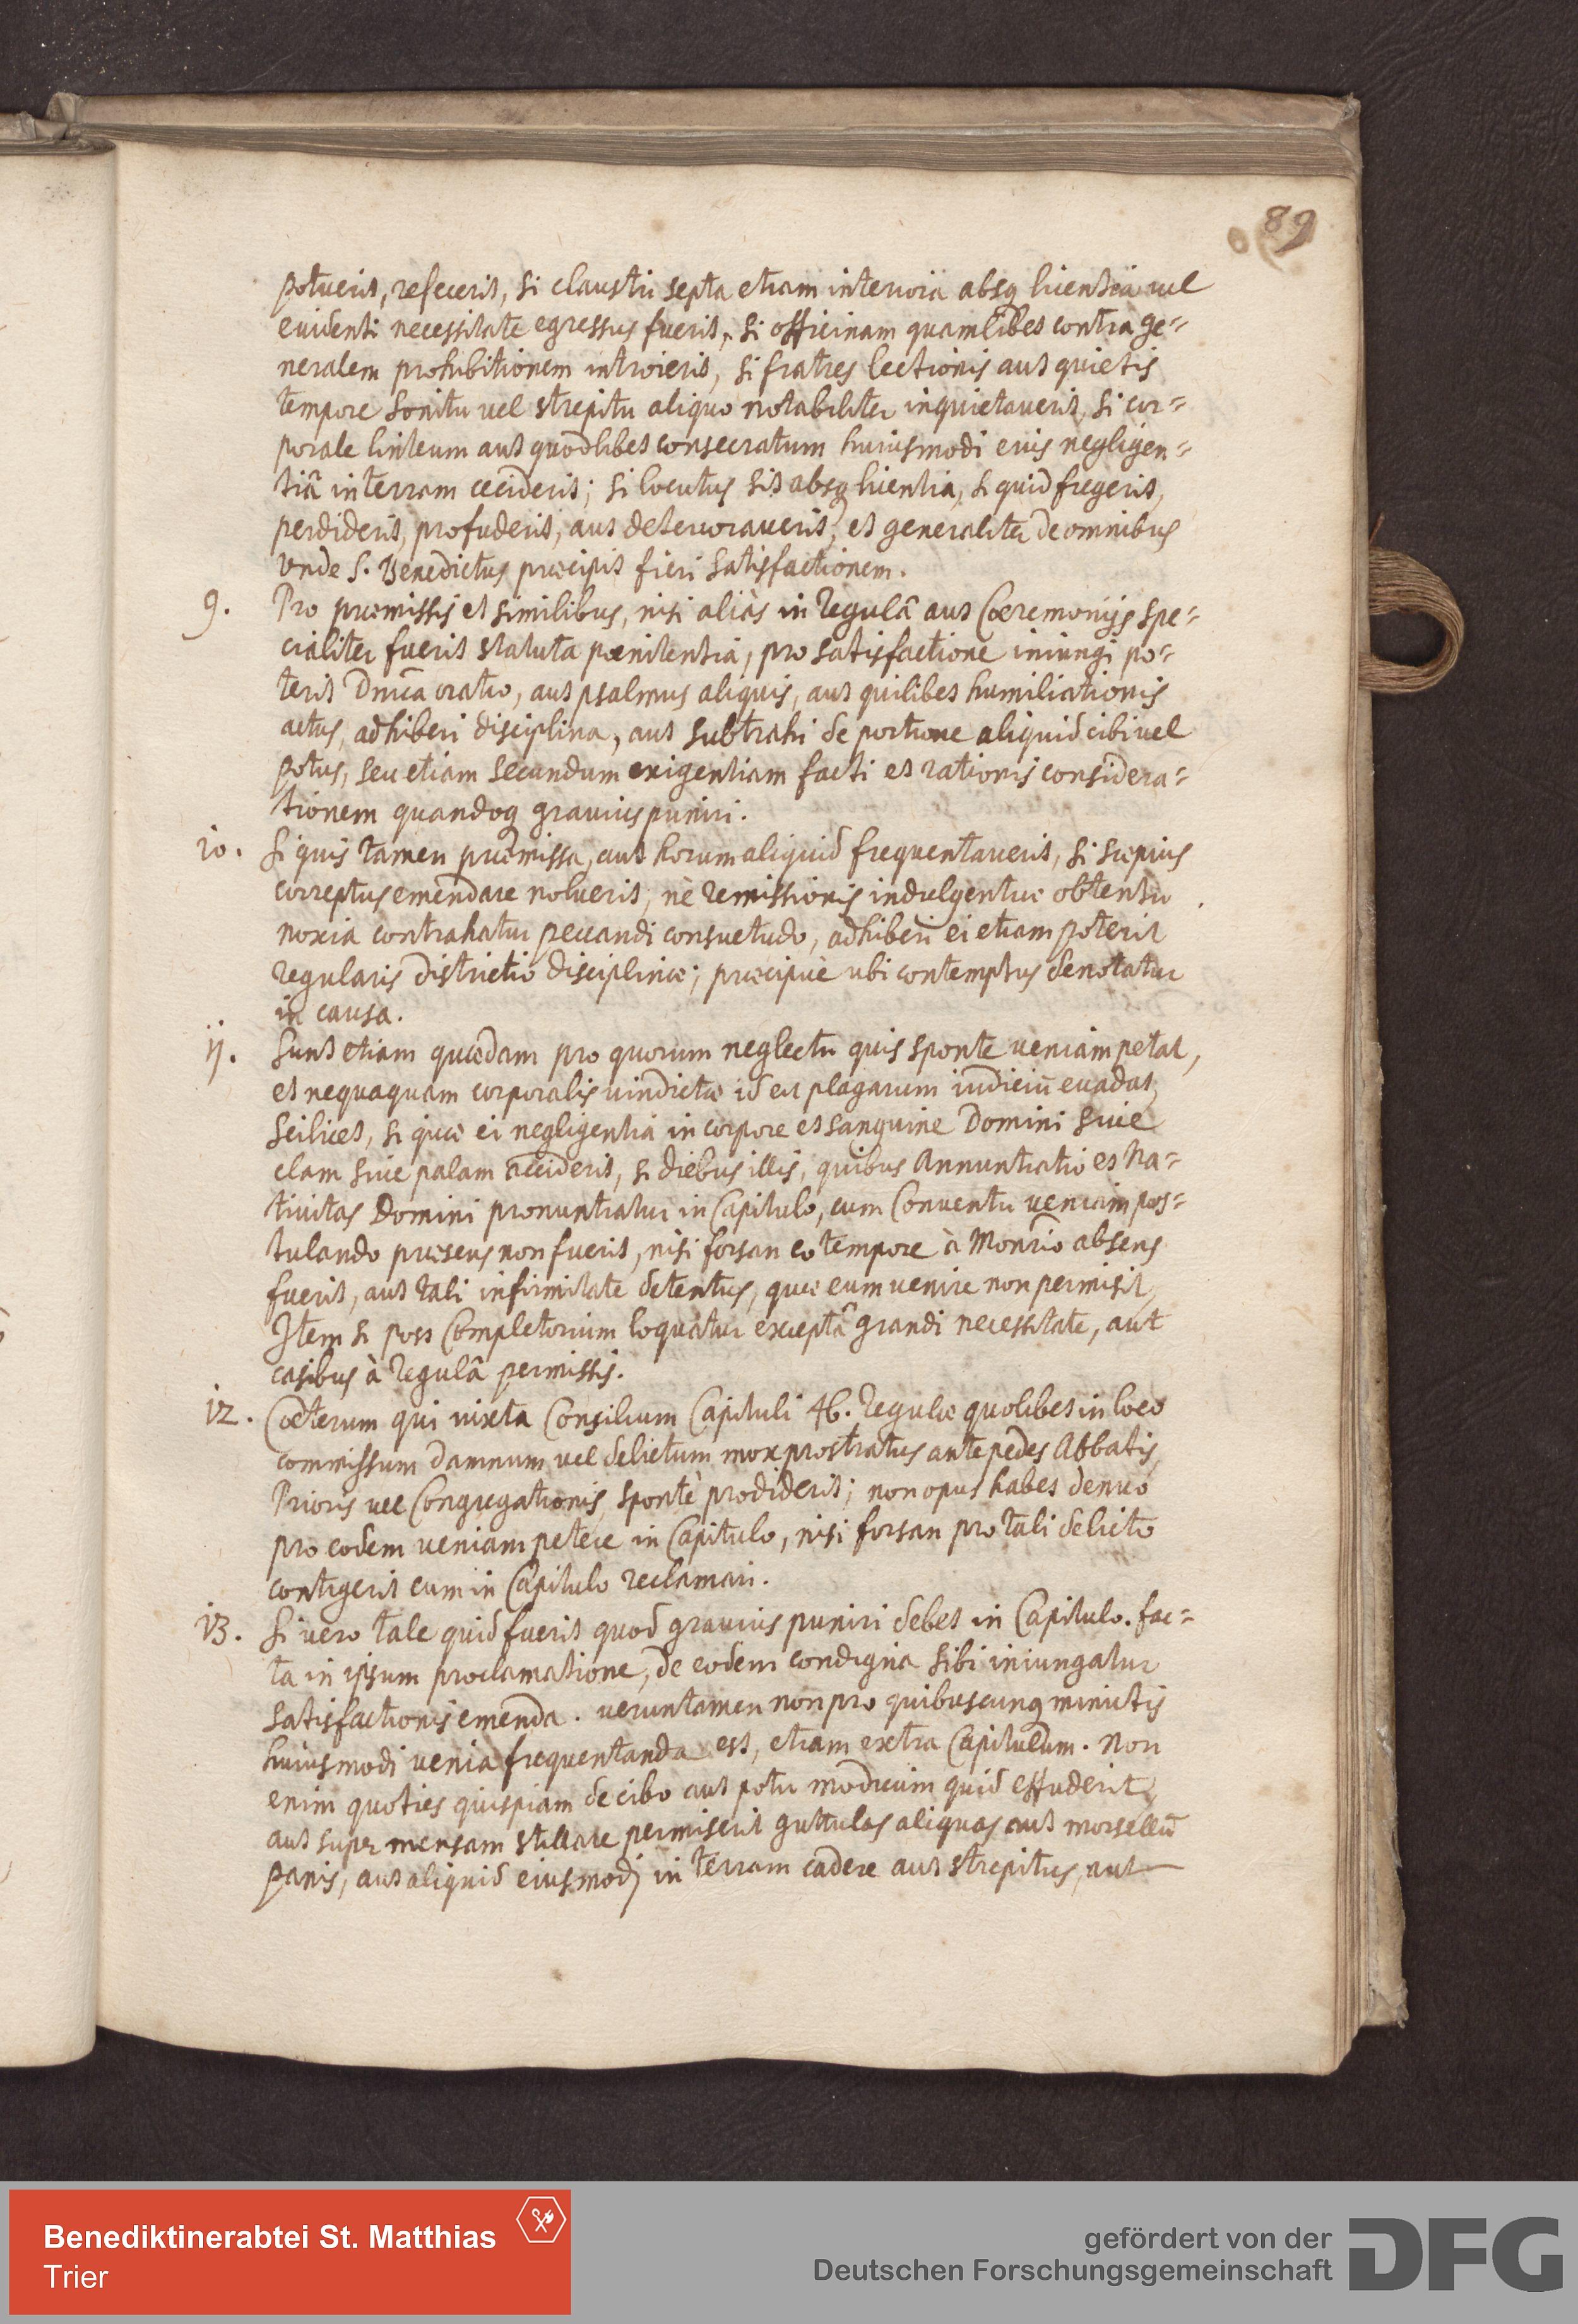 89
potuerit, refecerit, si claustri septa etiam interiora absq licentia vel
euidenti necessitate egressus fuerit, si officinam quamlibet contra ge=
neralem prohibitionem introierit, si fratres lectionis aut quietis
tempore sonitu vel strepitu aliquo notabiliter inquietauerit, si cor=
porale linteum aut quodlibet consecratum huiusmodi eius negligen=
tiâ in terram ceciderit; si locutus sit absq licentia, si quid fregerit,
perdiderit, profuderit, aut deterioraverit, et generaliter de omnibus
vnde S. Benedictus præcipit fieri satisfactionem.
9. Pro præmissis et similibus, nisi aliàs in Regulâ aut Cæremonijs spe=
cialiter fuerit statuta pœnitentia, pro satisfactione iniungi po=
terit Dnica oratio, aut psalmus aliquis, aut quilibet humiliationis
actus, adhiberi disciplina, aut subtrahi de portione aliquid cibi vel
potus, seu etiam secundum exigentiam facti et rationis considera=
tionem quandoq gravius puniri.
10. Si quis tamen præmissa, aut horum aliquid frequentaverit, si sæpius
correptus emendare noluerit, nè remissionis indulgentiæ obtentu
noxia contrahatur peccandi consuetudo, adhiberi ei etiam poterit
regularis districtio disciplinæ; præcipuè ubi contemptus denotatur
in causa.
ij. Sunt etiam quædam pro quorum neglectu quis sponte veniam petat,
et nequaquam corporalis vindictæ id est plagarum iudiciū evadat,
Scilicet, si quæ ei negligentia in corpore et sanguine Domini sive
clam sive palam acciderit, si diebus illis, quibus Annuntiatio et Na=
tivitas Domini pronuntiatur in Capitulo, cum Conventu veniam pos=
tulando præsens non fuerit, nisi forsan eo tempore à Monrio absens
fuerit, aut tali infirmitate detentus, quæ eum venire non permisit,
Item si post Completorium loquatur exceptâ grandi necessitate, aut
casibus à Regulâ permissis.
12. Cæterum qui iuxta Consilium Capituli 46. Regulæ quolibet in loco
commissum damnum vel delictum mox prostratus ante pedes Abbatis,
Prioris vel Congregationis, spontè prodiderit; non opus habet denuo
pro eodem veniam petere in Capitulo, nisi forsan pro tali delicto
contigerit eum in Capitulo reclamari.
13. Si vero tale quid fuerit quod gravius puniri debet in Capitulo. fac=
ta in ipsum proclamatione, de eodem condigna sibi iniungatur
satisfactionis emenda. veruntamen non pro quibuscunq minutis
huiusmodi venia frequentanda est, etiam extra Capitulum. Non
enim quoties quispiam de cibo aut potu modicum quid effuderit,
aut super mensam stillare permiserit guttulas aliquas aut morsellū
panis, aut aliquid eiusmodj in terram cadere aut strepitus, aut
Benediktinerabtei St. Matthias
Trier
gefördert von der
Deutschen Forschungsgemeinschaft
DFG